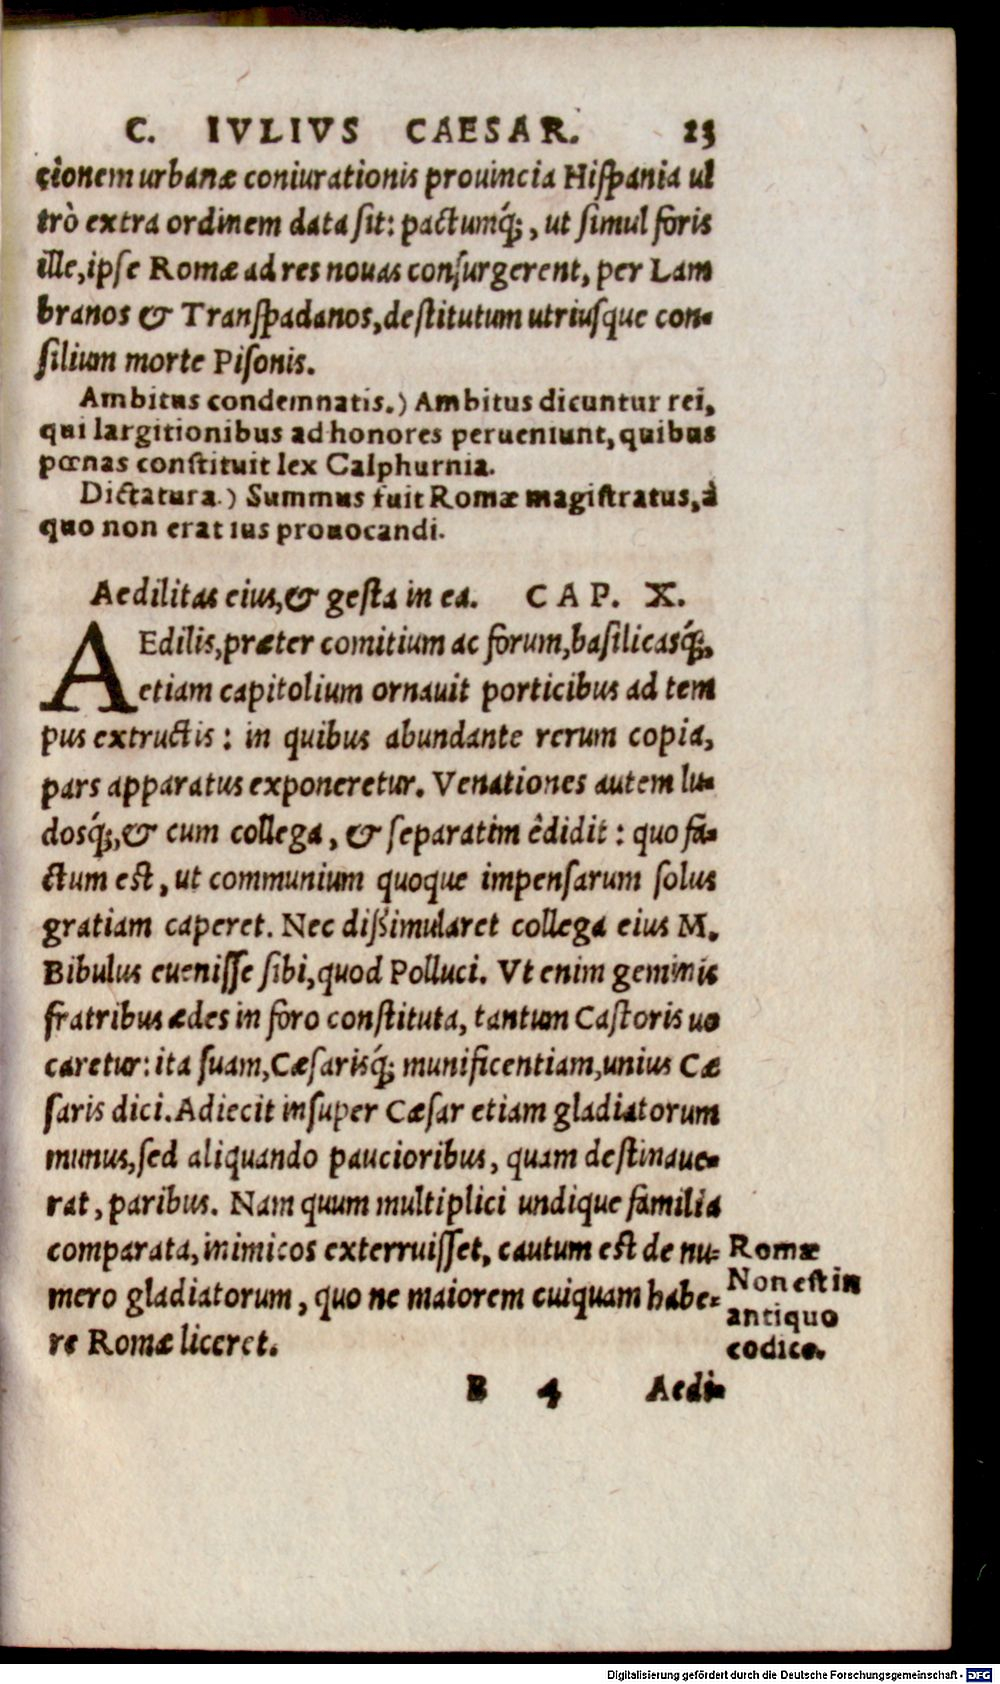 C. IVLIVS CAESAR. 23
cionem urbanæ coniurationis prouincia Hiſpania ul
trò extra ordinem data ſit: pactumq́;, ut ſimul foris
ille, ipſe Romæ ad res nouas conſurgerent, per Lam
branos & Tranſpadanos, deſtitutum utriuſque con-
ſilium morte Piſonis.
Ambitus condemnatis.) Ambitus dicuntur rei,
qui largitionibus ad honores perueniunt, quibus
pœnas conſtituit lex Calphurnia.
Dictatura.) Summus fuit Romæ magiſtratus, à
quo non erat ius prouocandi.
Aedilitas eius, & geſta in ea. CAP. X.
AEdilis, præter comitium ac forum, baſilicasq́;,
etiam capitolium ornauit porticibus ad tem
pus extructis: in quibus abundante rerum copia,
pars apparatus exponeretur. Venationes autem lu-
dosq́;, & cum collega, & ſeparatim êdidit: quo fa-
ctum eſt, ut communium quoque impenſarum ſolus
gratiam caperet. Nec dißimularet collega eius M.
Bibulus eueniſſe ſibi, quod Polluci. Vt enim geminis
fratribus ædes in foro conſtituta, tantum Caſtoris uo
caretur: ita ſuam, Cæſarisq́; munificentiam, unius Cæ
ſaris dici. Adiecit inſuper Cæſar etiam gladiatorum
munus, ſed aliquando paucioribus, quam deſtinaue-
rat, paribus. Nam quum multiplici undique familia
comparata, inimicos exterruiſſet, cautum eſt de nu-
mero gladiatorum, quo ne maiorem cuiquam habe-
re Romæ liceret.
Romæ
Non eſt in
antiquo
codice.
B 4 Aedi-
Digitalisierung gefördert durch die Deutsche Forschungsgemeinschaft - DFG